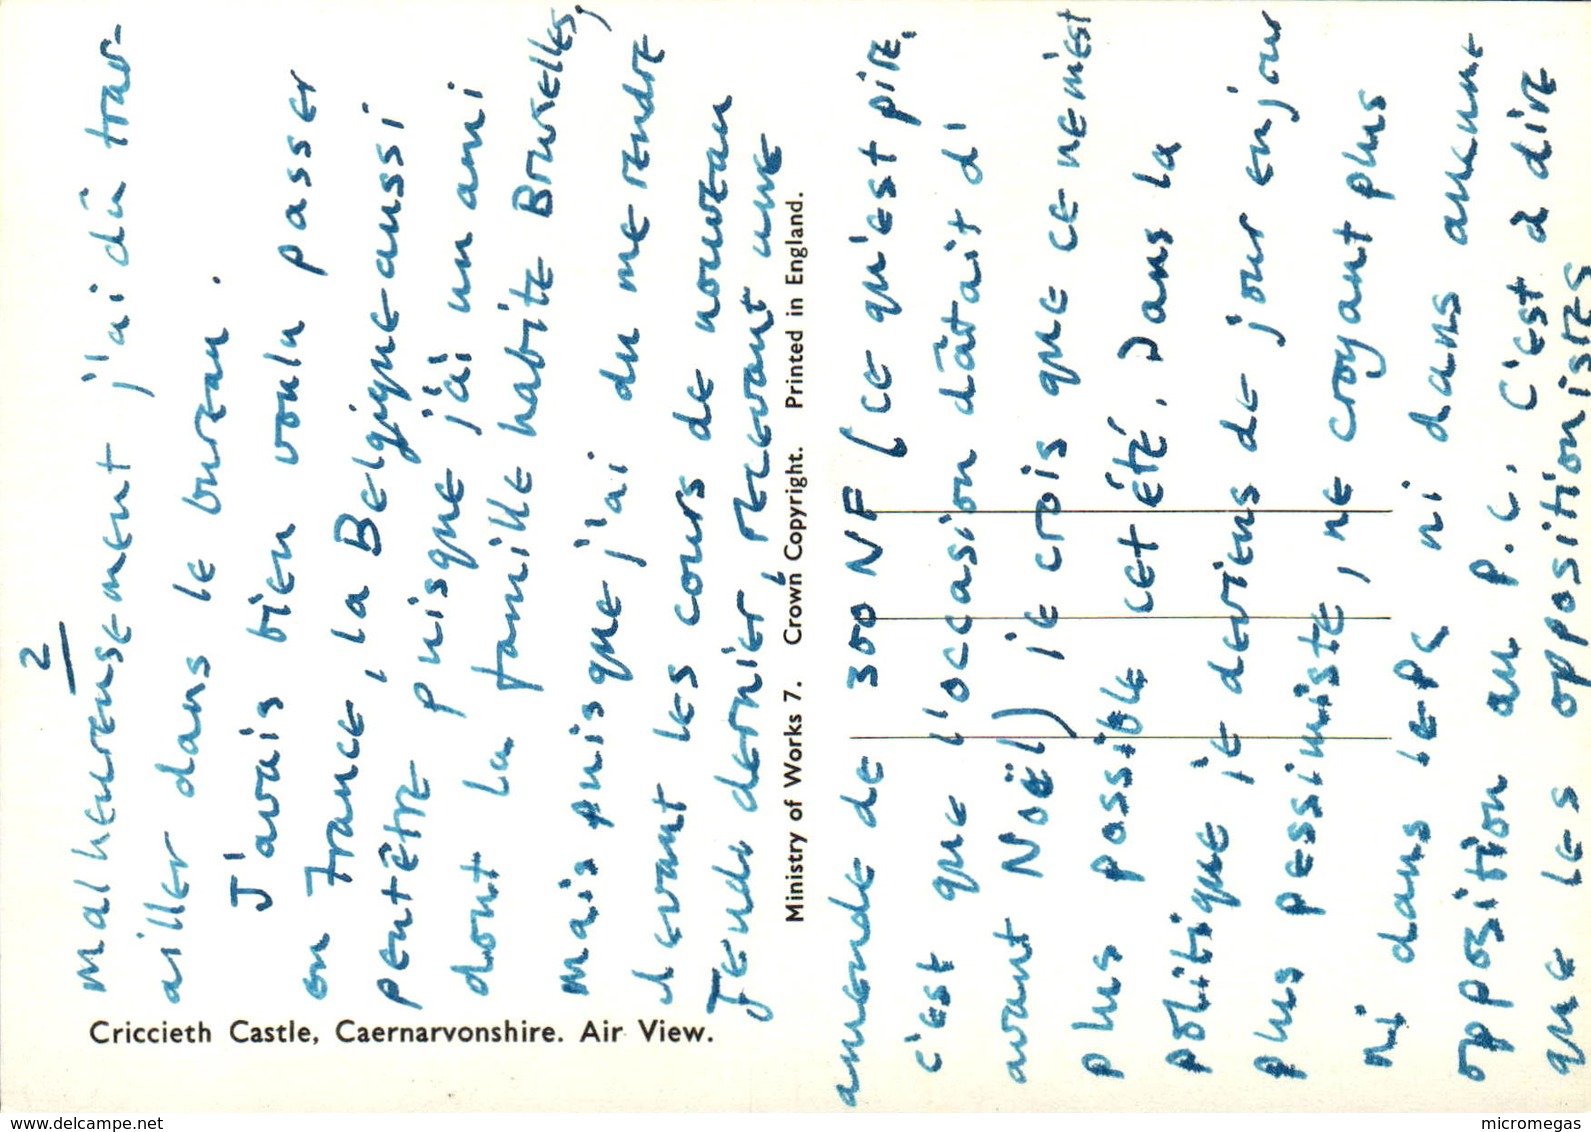 2
malheureusement j'ai dû trav-
ailler dans le bureau.
J'avais bien voulu passer
en France, la Belgique aussi
peut être puisque j'ai un ami
dont la famille habite Bruxelles,
mais puisque j'ai du me rendre
devant les cours de nouveau
Jeudi dernier, recevant une
Criccieth Castle, Caernarvonshire. Air View.
Ministry of Works 7. Crown Copyright. Printed in England.
amende de 300 NF (ce qu'est pire,
c'est que l'occasion dâtait d'
avant Noël) je crois que ce ne m'est
plus possible cet été. Dans la
politique je deviens de jour en jour
plus pessimiste, ne croyant plus
ni dans le PC ni dans aucune
opposition au P.C. C'est à dire
que les oppositionistes
www.delcampe.net
micromegas